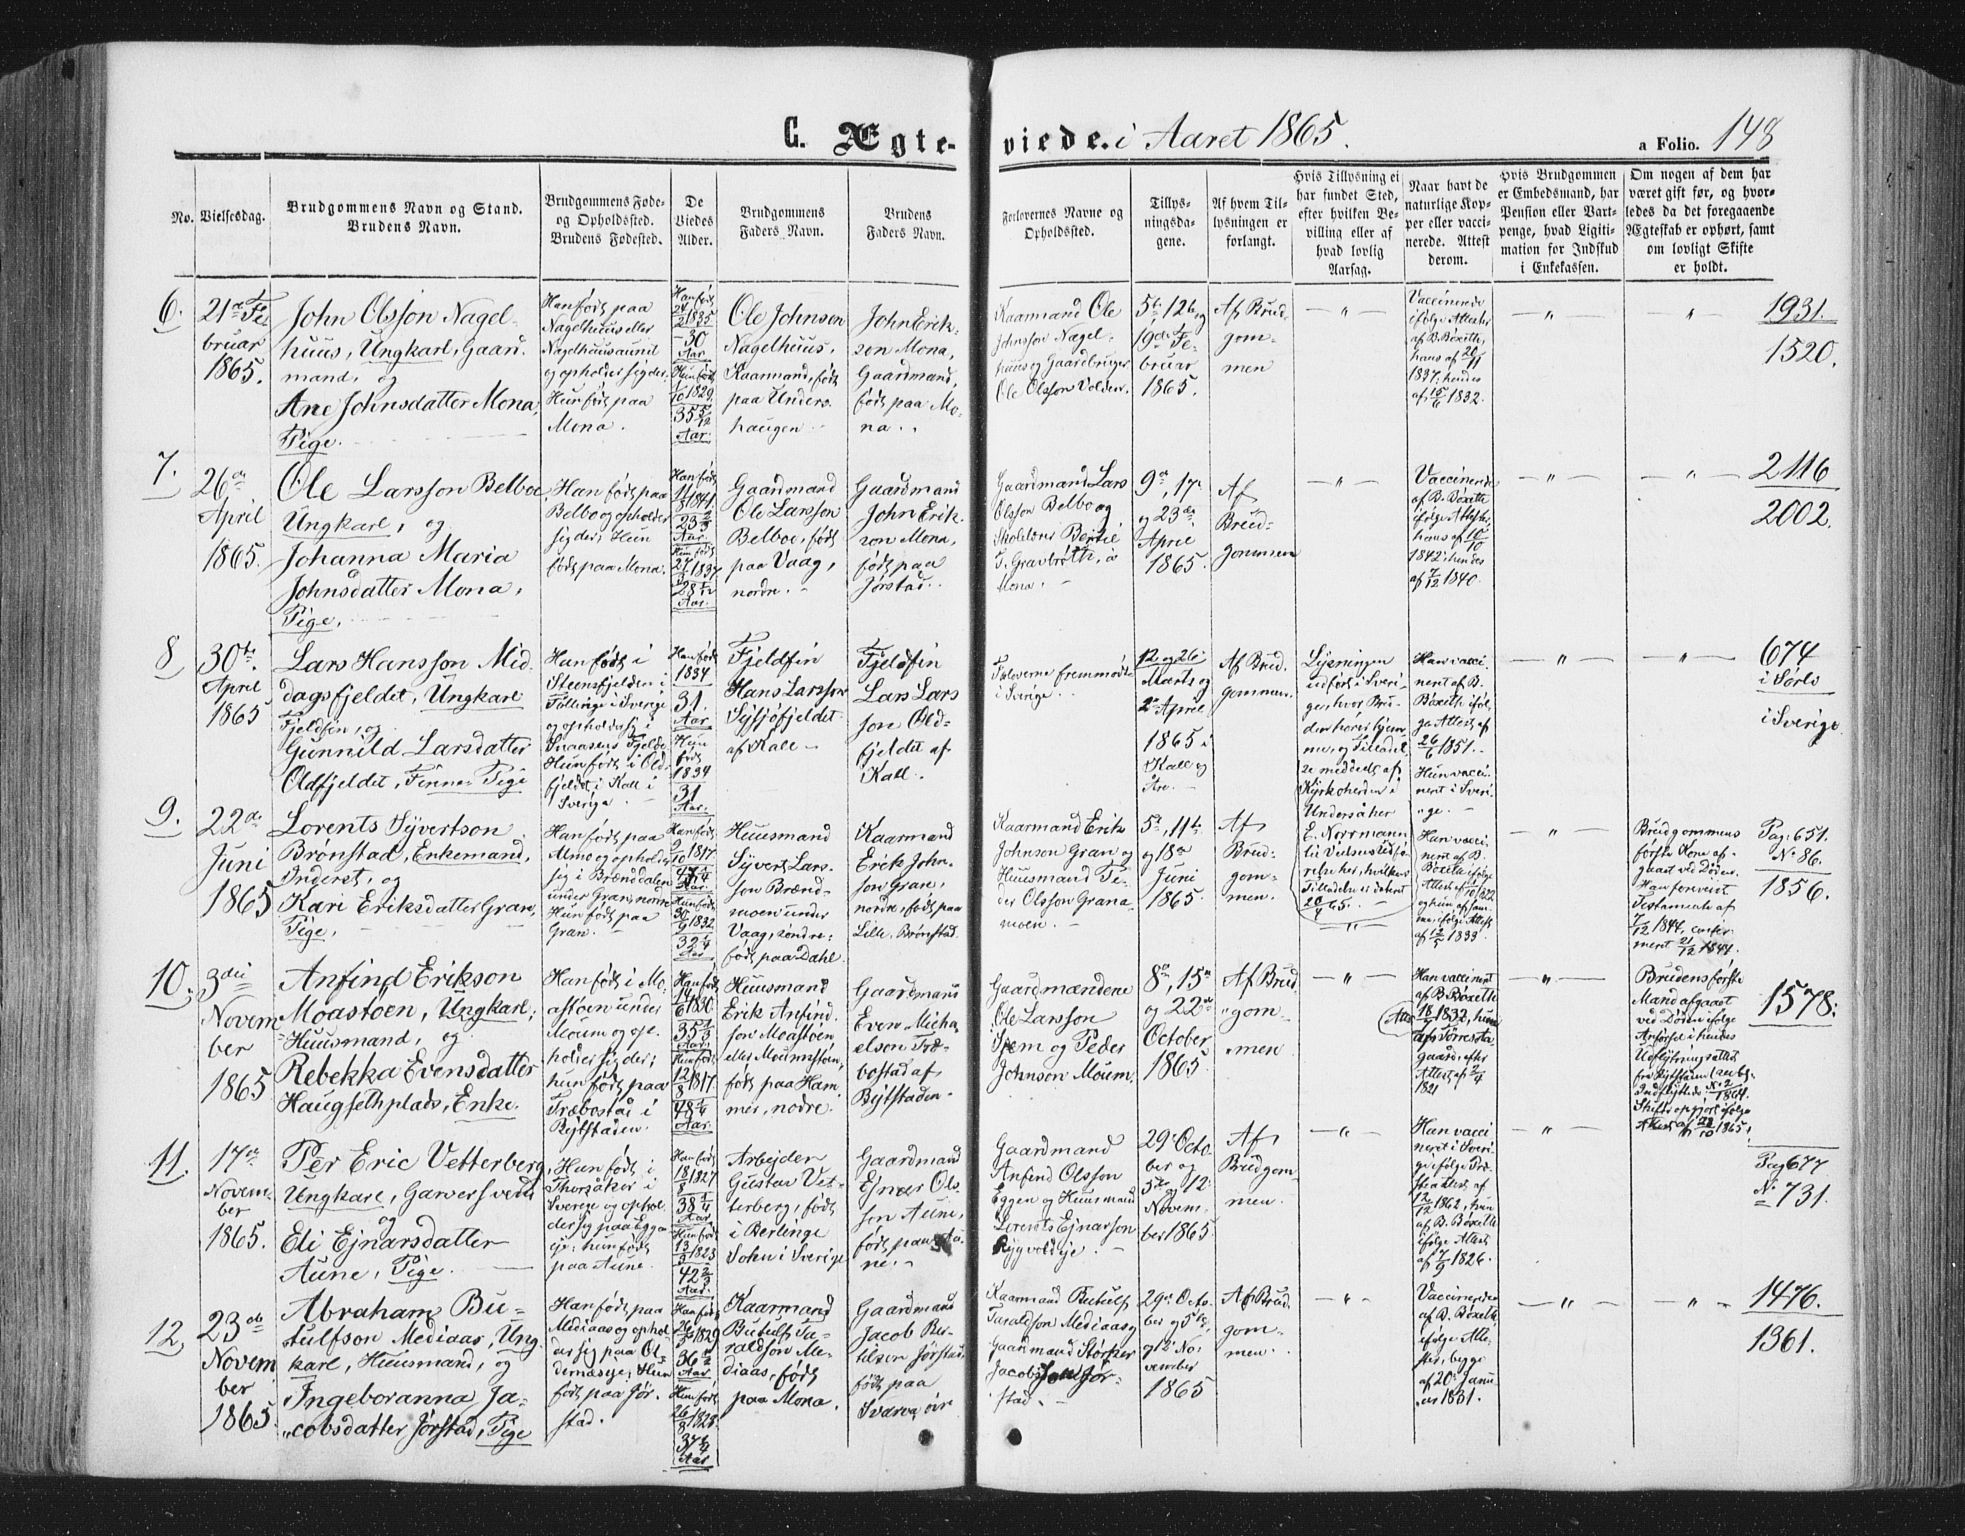 C. Ægteviede. i Aaret 1865.
a Folio. 148
No.
Vielsesdag.
Brudgommens Navn og Stand.
Brudens Navn.
Brudgommens Føde-
og Opholdssted.
Brudens Fødested.
De
Viedes
Alder.
Brudgommens
Faders Navn.
Brudens
Faders Navn.
Forlovernes Navne og
Opholdssted.
Tillys-
ningsda-
gene.
Af hvem Til-
lysningen er
forlangt.
Hvis Tillysning ei
har fundet Sted,
efter hvilken Be-
villing eller af
hvad lovlig
Aarsag.
Naar havt de
naturlige Kop-
per eller vacci-
nerede. Attest
derom.
Hvis Brudgommen
er Embedsmand, har
Pension eller Vart-
penge, hvad Legiti-
mation for Indskud
i Enkekassen.
Om nogen af dem har
været gift før, og hvor-
ledes da det foregaaende
Ægteskab er ophørt, samt
om lovligt Skifte
er holdt.
6.
21de Fe
bruar
1865.
John Olsson Nagel-
huus, Ungkarl, Gaard-
mand, og
Ane Johnsdatter Mona,
Pige.
Han født paa
Nagelhuus eller
Nagelhuusaunet
og opholder sig der.
Hun født paa
Mona.
Han født
1835
30
Aar
Hun født
1829
35 5/12
Aar.
Ole Johnsen
Nagelhuus,
Kaarmand, født
paa Unders-
haugen.
John Erik-
son Mona,
Gaardmand,
født paa Mo-
na.
Kaarmand Ole
Johnsson Nagel-
huus og Gaardbruger
Ole Olsson Volden.
5te, 12te og
19de Fe-
bruar
1865.
Af Brud-
gom-
men
Vaccinerede
ifølge Attester
af B. Bøxeth,
hans af 20/11
1837; hendes
af 15/6 1832.
1931.
1520.
7.
26de
April
1865.
Ole Larsson Belboe
Ungkarl, og
Johanna Maria
Johnsdatter Mona,
Pige.
Han født paa
Belbo og opholder
sig der; Hun
født paa Mona.
Han født
1841
23 2/3
Aar
Hun født
1837
28 1/12
Aar.
Gaardmand
Ole Larsson
Belboe, født
paa Vaag,
nordre.
Gaardmand
John Erik-
son Mona,
født paa
Jørstad.
Gaardmand Lars
Olsson Belbo og
Skoleholder Bertil
T. Gravbrøth, à
Mona.
9de, 17de
og 23de
April
1865.
Af
Brud-
gommen
Vaccinerede
af B. Bøxeth
ifølge Attester,
hans af 10/10
1842; hendes
af 7/12 1840.
2116
2002.
8
30te
April
1865
Lars Hansson Mid-
dagsfjeldet, Ungkarl
Fjeldfin, og
Gunnild Larsdatter
Oldfjeldet, Finne-Pige
Han født i
Steensfjelden i
Föllinge i Sverige
og opholder sig i
Snaasens Fjelde
Hun født i Old-
fjeldet i Kall i
Sverige
Han født
1834
31.
Aar
Hun
født
1834
31
Aar.
Fjeldfin
Hans Larsson
Sysjöfjeldet
af Kall
Fjeldfin
Lars Lars
son Old-
fjeldet af
Kall.
Forloverne fremmødte
i Sverige.
12 og 26
Marts og
2den April
1865 i
Kall og
Åre.
Af Brud-
gommen.
Lysningen
udført i Sveri-
ge, hvor Bru-
den hører hjem-
me, og Tilladel-
se meddelt af
Kyrkoherden i
Undersåker
E. Norrmann
til Vielsens Udfø-
relse her, hvilken
Tilladelse er dateret
20/4 65.
Han vacci-
neret af B.
Bøxeth iføl-
ge Attest af
26/6 1851.
Hun vacci-
neret i Sveri-
ge.
674
i Sørli
i Sverige
9.
22de
Juni
1865
Lorents Syvertson
Brønstad, Enkemand,
Inderst, og
Kari Eriksdatter Gran,
Pige,
Han født paa
Almo og opholder
sig i Brænddalen
under Gran, nordre
Hun født paa
Gran.
Han født
1817
47 3/4
Aar
Hun født
1832
32 3/4
Aar
Huusmand
Syvert Lars-
son Brænd-
moen under
Vaag, søndre,
født paa Dahl.
Kaarmand
Erik John-
son Gran,
nordre, født paa
Lille-Brønstad.
Kaarmand Erik
Johnson Gran og
Huusmand Pe-
der Olsson Grana-
moen.
5te, 11te
og 18de
Juni
1865.
Af
Brud-
gom-
men.
Han vacci-
neret af B.
Bøxeth ifølge
Attest af
og hun af sam-
me, ifølge Attest
af 12/5 1833.
Brudgommens
første Kone af-
gaaet ved Døden.
Han foreviist
Testamente af
7/12 1844, confir-
meret 21/12 1844.
Pag. 651.
No 86.
1856.
10.
3die
Novem-
ber
1865
Anfind Erikson
Moastøen, Ungkarl,
Huusmand, og
Rebekka Evensdatter
Haugsethplads, Enke.
Han født i Mo-
astøen under
Moum og op-
holder sig der;
hun født paa
Træbostad i
Beitstaden.
Han født
1830
35 1/3
Aar.
Hun født
12/8 1817
48 1/4
Aar.
Huusmand
Erik Anfind-
son Moastøen
eller Moumstøen,
født paa Ham-
mer, nordre.
Gaardmand
Even Micha-
elson Træ-
bostad af
Beitstaden.
Gaardmændene
Ole Larsson
Strem og Peder
Johnson Moum.
8de, 15de
og 22de
October
1865.
Af Brud-
gom-
men
Han vaccineret
af B. Bøxeth
1832, hun
gaard, efter
Attest af 2/4
1821
Brudens første
Mand afgaaet
ved Døden ifølge
Anførsel i hendes
Udflytningsattest
fra Beitstaden
Indflyttede No 2
1864.
Skifte opgjort ifølge
Attest af 28/10 1865.
1578.
11.
17de
Novem-
ber
1865.
Per Eric Vetterberg
Ungkarl, Garversvend
og
Eli Ejnarsdatter
Aune, Pige.
Han født i
Thorsåker i
Sverige og ophol-
der sig paa Eggen-
eje; hun født
paa Aune.
Han født
18/8 1827
38 1/4
Aar
Hun født
13/3 1823
42 2/3
Aar.
Arbejder
Gustav Vet-
terberg, født
i Berlinge
Sohn i Sverige
Gaardmand
Ejnar Ols-
sen Aune,
født paa Au-
ne.
Gaardmand
Anfind Olsson
Eggen og Huusmand
Lorents Ejnarson
Rygvoldeje.
29de Octo-
ber og
5te og 12te
Novem-
ber 1865
Af
Brudgom-
men.
Han vacci-
neret i Sveri-
ge ifølge Præ-
steattest af
12/12 1862, hun
af B. Bøxeth
ifølge Attest
af 7/9 1826.
Pag 677
No 731.
12.
23de
Novem-
ber
1865.
Abraham Bu-
tulfson Mediaas, Ung-
karl, Huusmand, og
Ingeboranna Ja-
cobsdatter Jørstad, Pige
Han født paa
Mediaas og ophol-
der sig paa Ol-
dernæseje; Hun
født paa Jør-
stad.
Han født
1829
36
Aar
Hun født
26/8 1828
37 1/4
Aar
Kaarmand
Butulf Ta-
raldson Me-
diaas, født
paa Mona.
Gaardmand
Jacob Ber-
tilsen Jørstad
født paa
Svarva, øvre
Kaarmand Butulf
Taraldson Mediaas og
Gaardmand Størker
Jacobsson Jør-
stad.
29de Octo-
ber og 5te,
og 12te No-
vember
1865
Af Brud-
gom-
men.
Vaccinerede
af B. Bøxeth
ifølge Atte-
ster, begge
af 20de Janu-
ar 1831.
1476.
1361.